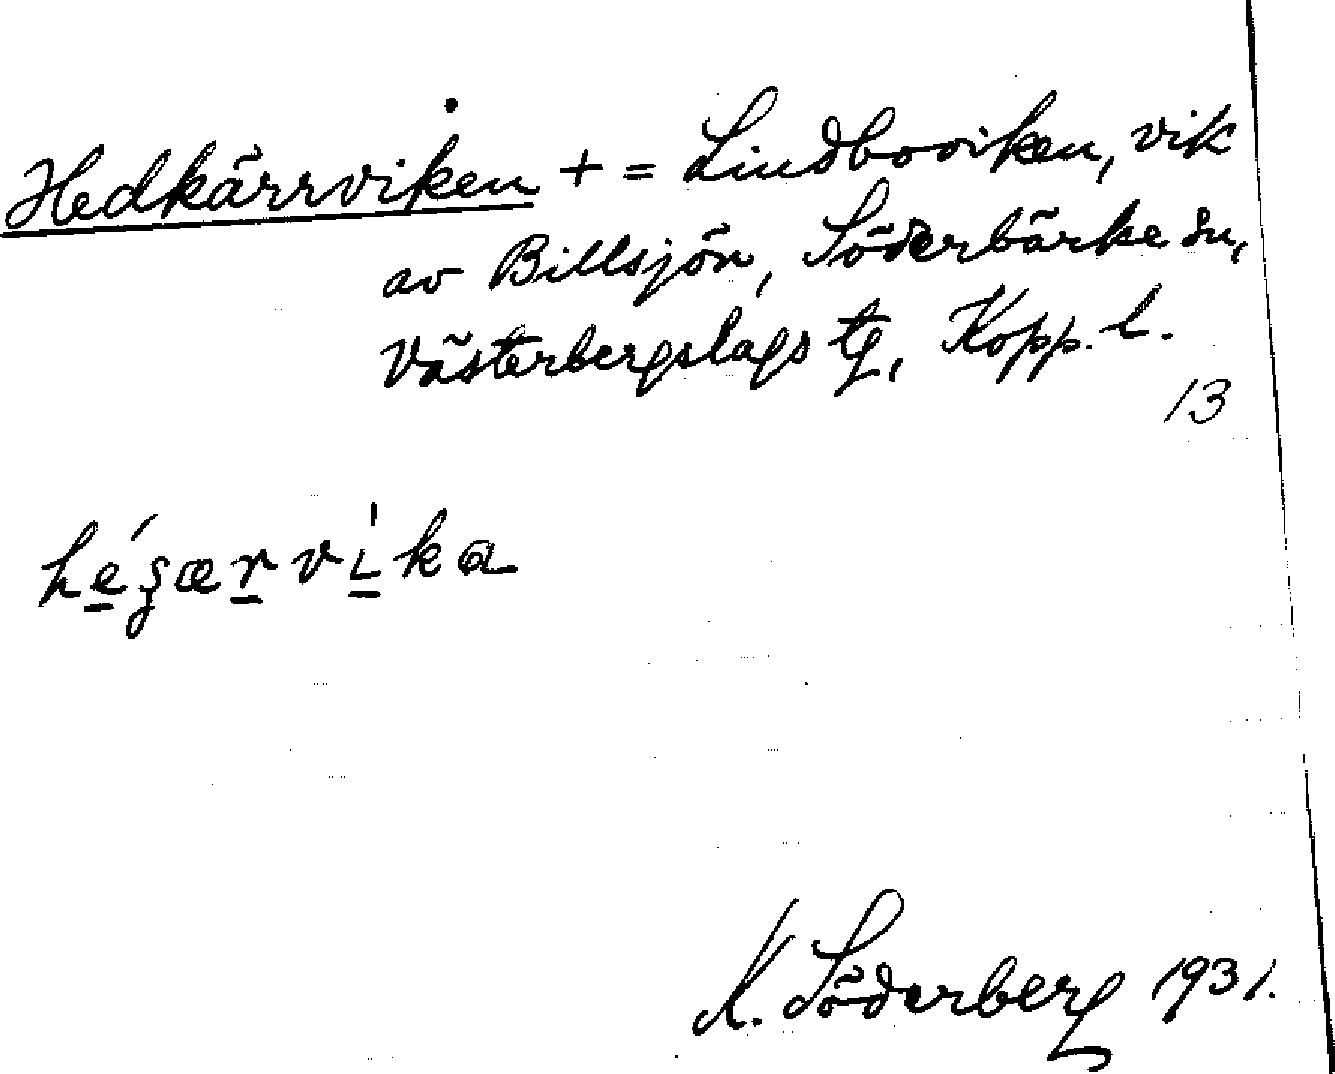 Hedkärrviken + = Lindboviken, vik
av Billsjön, Söderbärke sn,
Västerbergslags tg, Kopp. l.
13
K. Söderberg 1931.